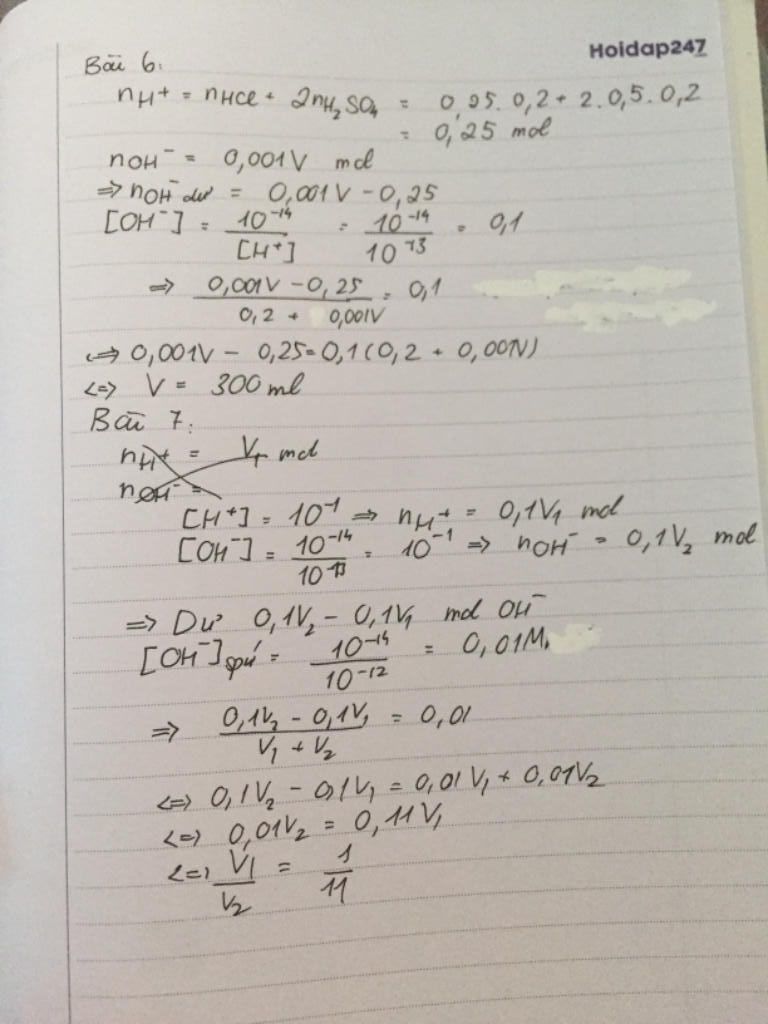 Hoidap247
Bài 6:
nH+ = nHCl + 2nH2SO4 = 0,25.0,2 + 2.0,5.0,2
= 0,25 mol
nOH- = 0,001V mol
=> nOH- dư = 0,001V - 0,25
[OH-] = 10^-14/[H+] = 10^-14/10^-13 = 0,1
=> (0,001V - 0,25)/(0,2 + 0,001V) = 0,1
<=> 0,001V - 0,25 = 0,1(0,2 + 0,001V)
<=> V = 300 ml
Bài 7:
nH+ = V1 mol
nOH- =
[H+] = 10^-1 => nH+ = 0,1V1 mol
[OH-] = 10^-14/10^-13 = 10^-1 => nOH- = 0,1V2 mol
=> Dư 0,1V2 - 0,1V1 mol OH-
[OH-] = 10^-14/10^-12 = 0,01M
=> (0,1V2 - 0,1V1)/(V1 + V2) = 0,01
<=> 0,1V2 - 0,1V1 = 0,01V1 + 0,01V2
<=> 0,01V2 = 0,11V1
<=> V1/V2 = 1/11